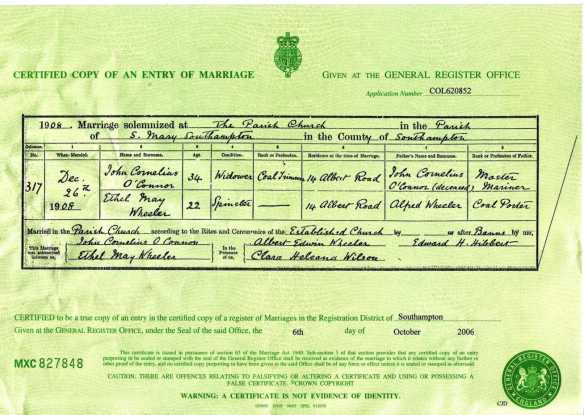 CERTIFIED COPY OF AN ENTRY OF MARRIAGE
GIVEN AT THE GENERAL REGISTER OFFICE
Application Number COL620852
1908. Marriage solemnized at The Parish Church in the Parish
of S. Mary Southampton in the County of Southampton
Columns:- 1 2 3 4 5 6 7 8
No. When Married. Name and Surname. Age. Condition. Rank or Profession. Residence at the time of Marriage. Father's Name and Surname. Rank or Profession of Father.
317 Dec. 26th 1908
John Cornelius O'Connor 34 Widower Coal Trimmer 14 Albert Road John Cornelius O'Connor (deceased) Master Mariner
Ethel May Wheeler 22 Spinster — 14 Albert Road Alfred Wheeler Coal Porter
Married in the Parish Church according to the Rites and Ceremonies of the Established Church by or after Banns by me,
This Marriage was solemnized between us,
John Cornelius O'Connor
Ethel May Wheeler
in the Presence of us,
Albert Edwin Wheeler
Clara Wilson
Edward H. Hibbert
CERTIFIED to be a true copy of an entry in the certified copy of a register of Marriages in the Registration District of Southampton
Given at the GENERAL REGISTER OFFICE, under the Seal of the said Office, the 6th day of October 2006
MXC 827848
This certificate is issued in pursuance of section 65 of the Marriage Act 1949. Sub-section 3 of that section provides that any certified copy of an entry
purporting to be sealed or stamped with the seal of the General Register Office shall be received as evidence of the marriage to which it relates without any further or
other proof of the entry, and no certified copy purporting to have been given in the said Office shall be of any force or effect unless it is sealed or stamped as aforesaid.
CAUTION: THERE ARE OFFENCES RELATING TO FALSIFYING OR ALTERING A CERTIFICATE AND USING OR POSSESSING A
FALSE CERTIFICATE. ©CROWN COPYRIGHT
WARNING: A CERTIFICATE IS NOT EVIDENCE OF IDENTITY.
GENERAL REGISTER OFFICE
ENGLAND